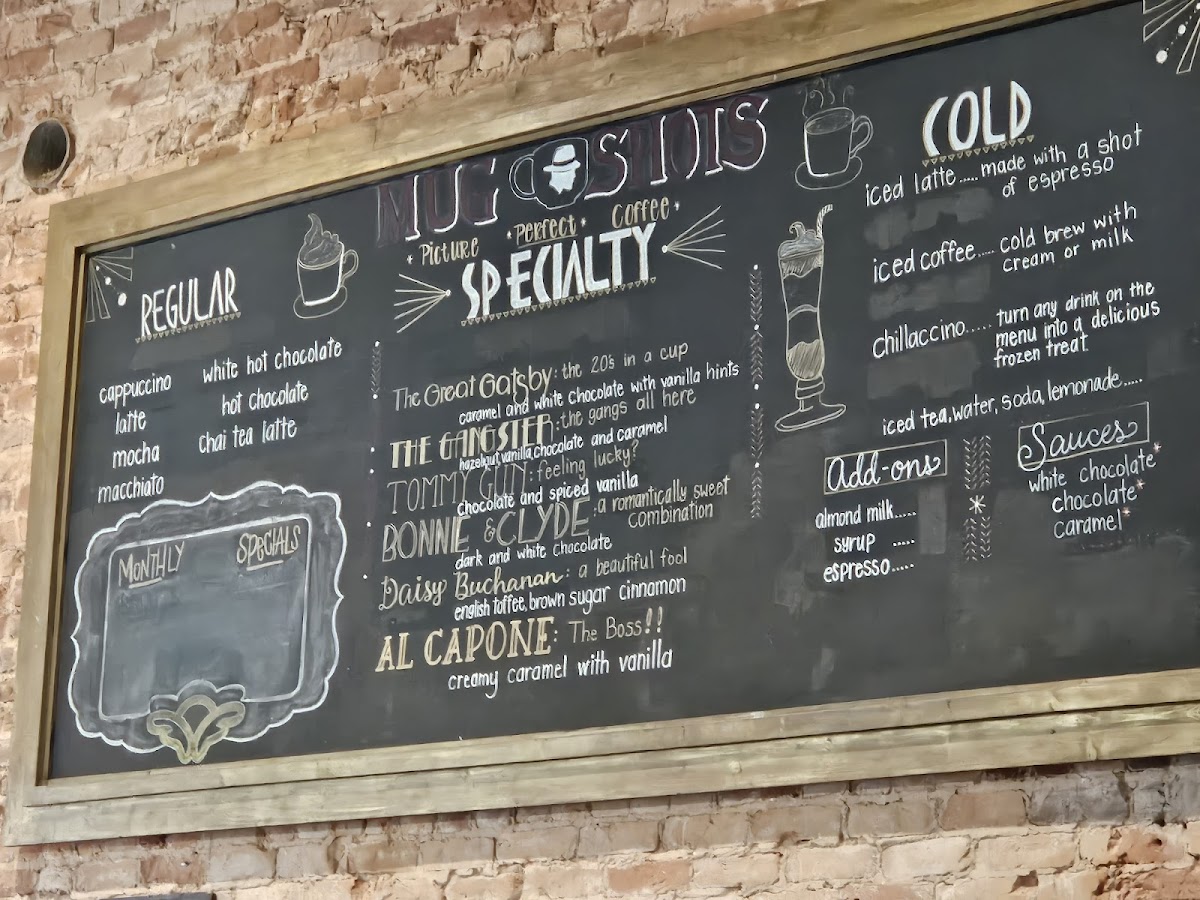 MUG SHOTS
Picture Perfect Coffee
REGULAR
cappuccino
latte
mocha
macchiato
white hot chocolate
hot chocolate
chai tea latte
MONTHLY SPECIALS
SPECIALTY
The Great Gatsby: the 20's in a cup
caramel and white chocolate with vanilla hints
THE GANGSTER: the gangs all here
hazelnut, vanilla, chocolate and caramel
TOMMY GUN: feeling lucky?
chocolate and spiced vanilla
BONNIE & CLYDE: a romantically sweet
combination
dark and white chocolate
Daisy Buchanan: a beautiful fool
english toffee, brown sugar cinnamon
AL CAPONE: The Boss!!
creamy caramel with vanilla
COLD
iced latte..... made with a shot
of espresso
iced coffee.... cold brew with
cream or milk
chillaccino..... turn any drink on the
menu into a delicious
frozen treat.
iced tea, water, soda, lemonade.....
Add-ons
almond milk.....
syrup .....
espresso.....
Sauces
white chocolate*
chocolate*
caramel*